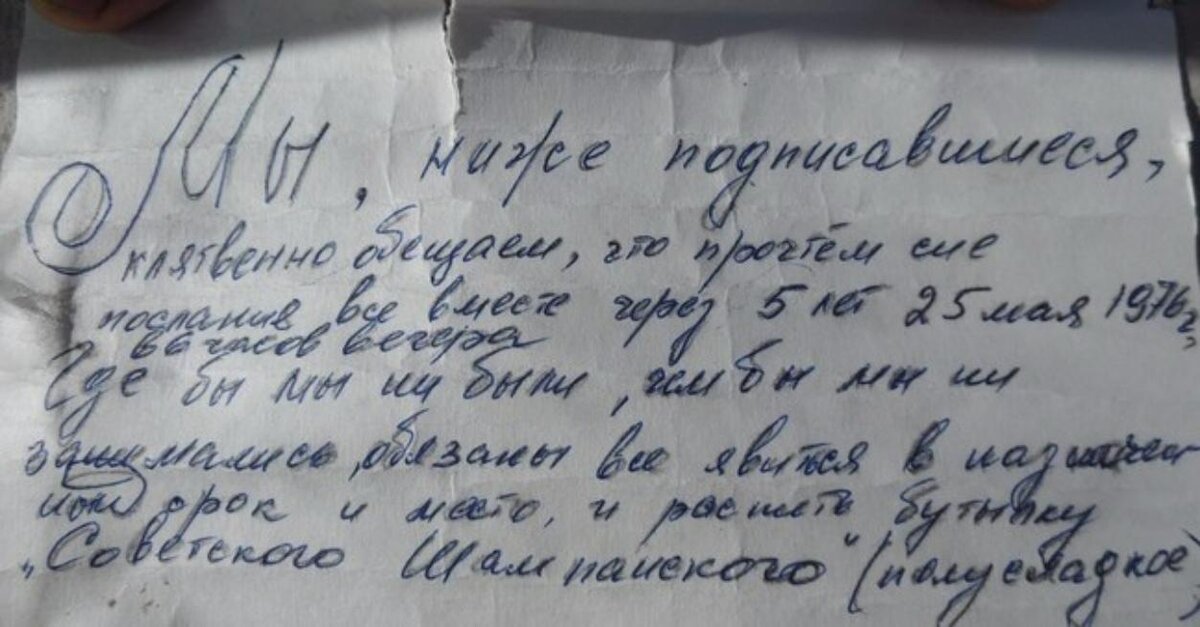 Мы, ниже подписавшиеся,
клятвенно обещаем, что прочтём сие
послание все вместе через 5 лет 25 мая 1976 г,
в 6 часов вечера
Где бы мы ни были, чем бы мы ни
занимались, обязаны все явиться в назначен
ный срок и место, и распить бутылку
„Советского Шампанского" (полусладкое)